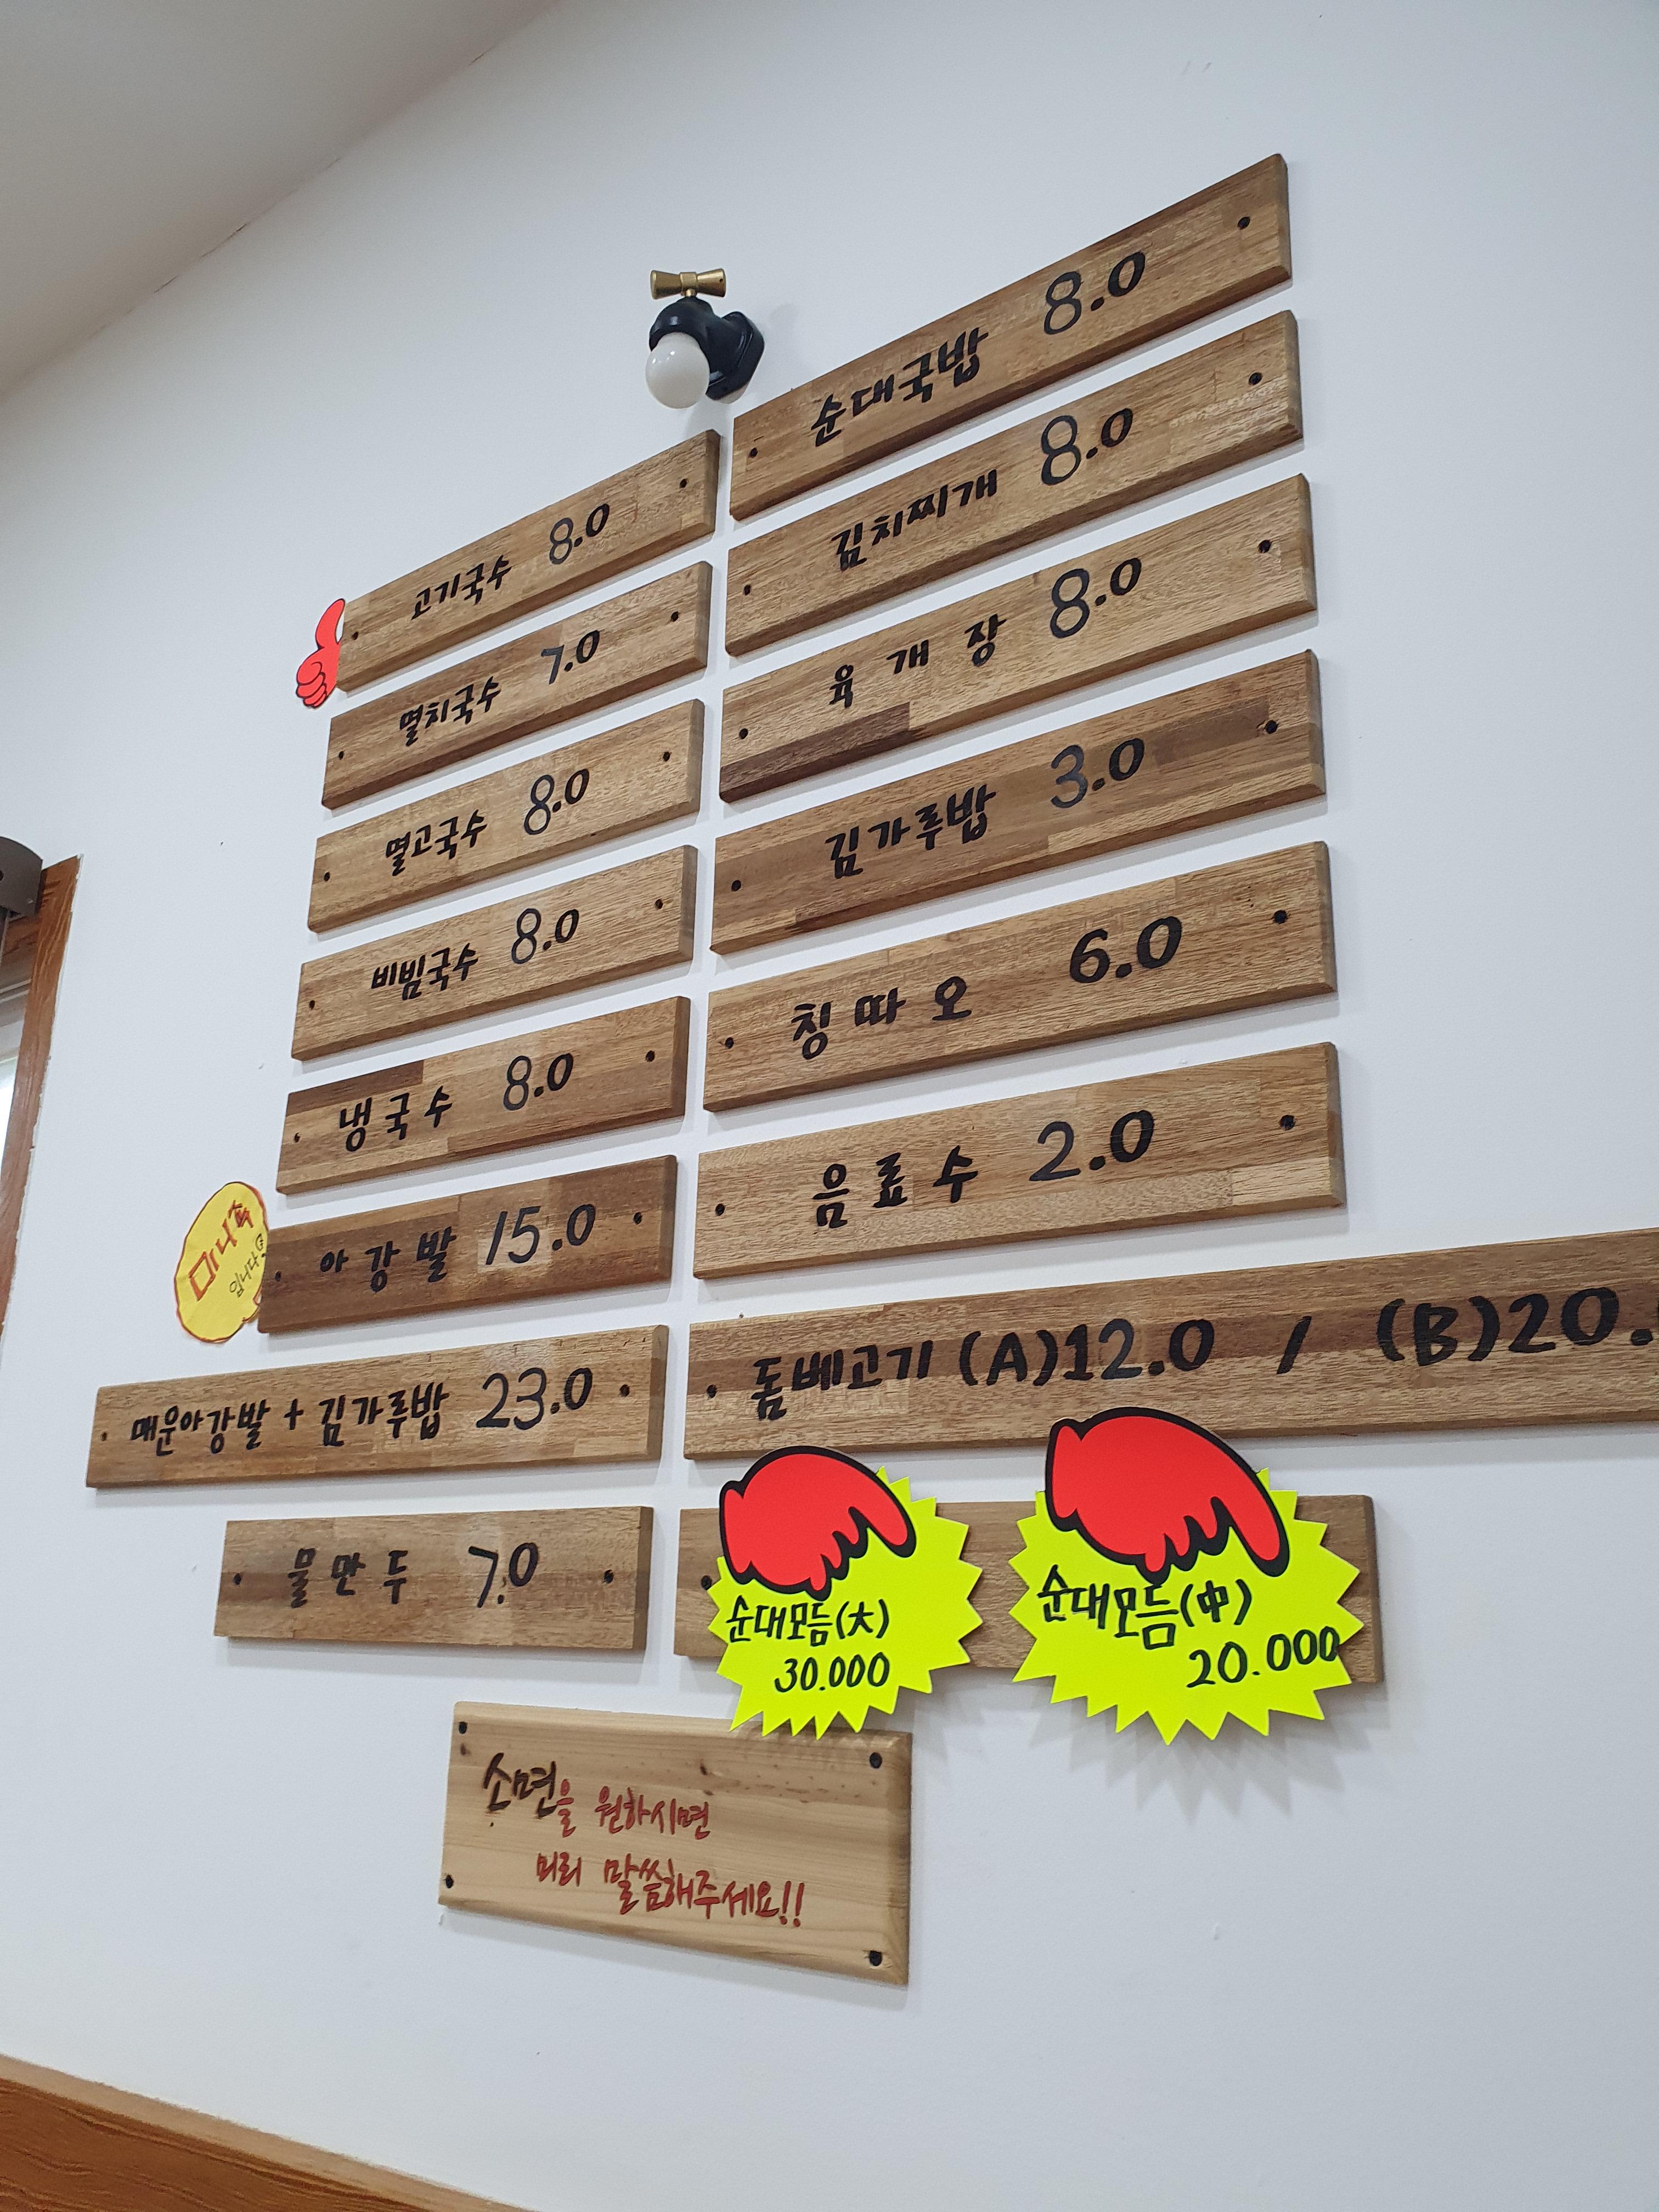 고기국수 8.0
멸치국수 7.0
멸고국수 8.0
비빔국수 8.0
냉국수 8.0
아강발 15.0
미니족
입니다
매운아강발 + 김가루밥 23.0
물만두 7.0
순대국밥 8.0
김치찌개 8.0
육개장 8.0
김가루밥 3.0
칭따오 6.0
음료수 2.0
돔베고기 (A)12.0 / (B)20.
순대모듬(大)
30.000
순대모듬(中)
20.000
소면을 원하시면
미리 말씀해주세요!!